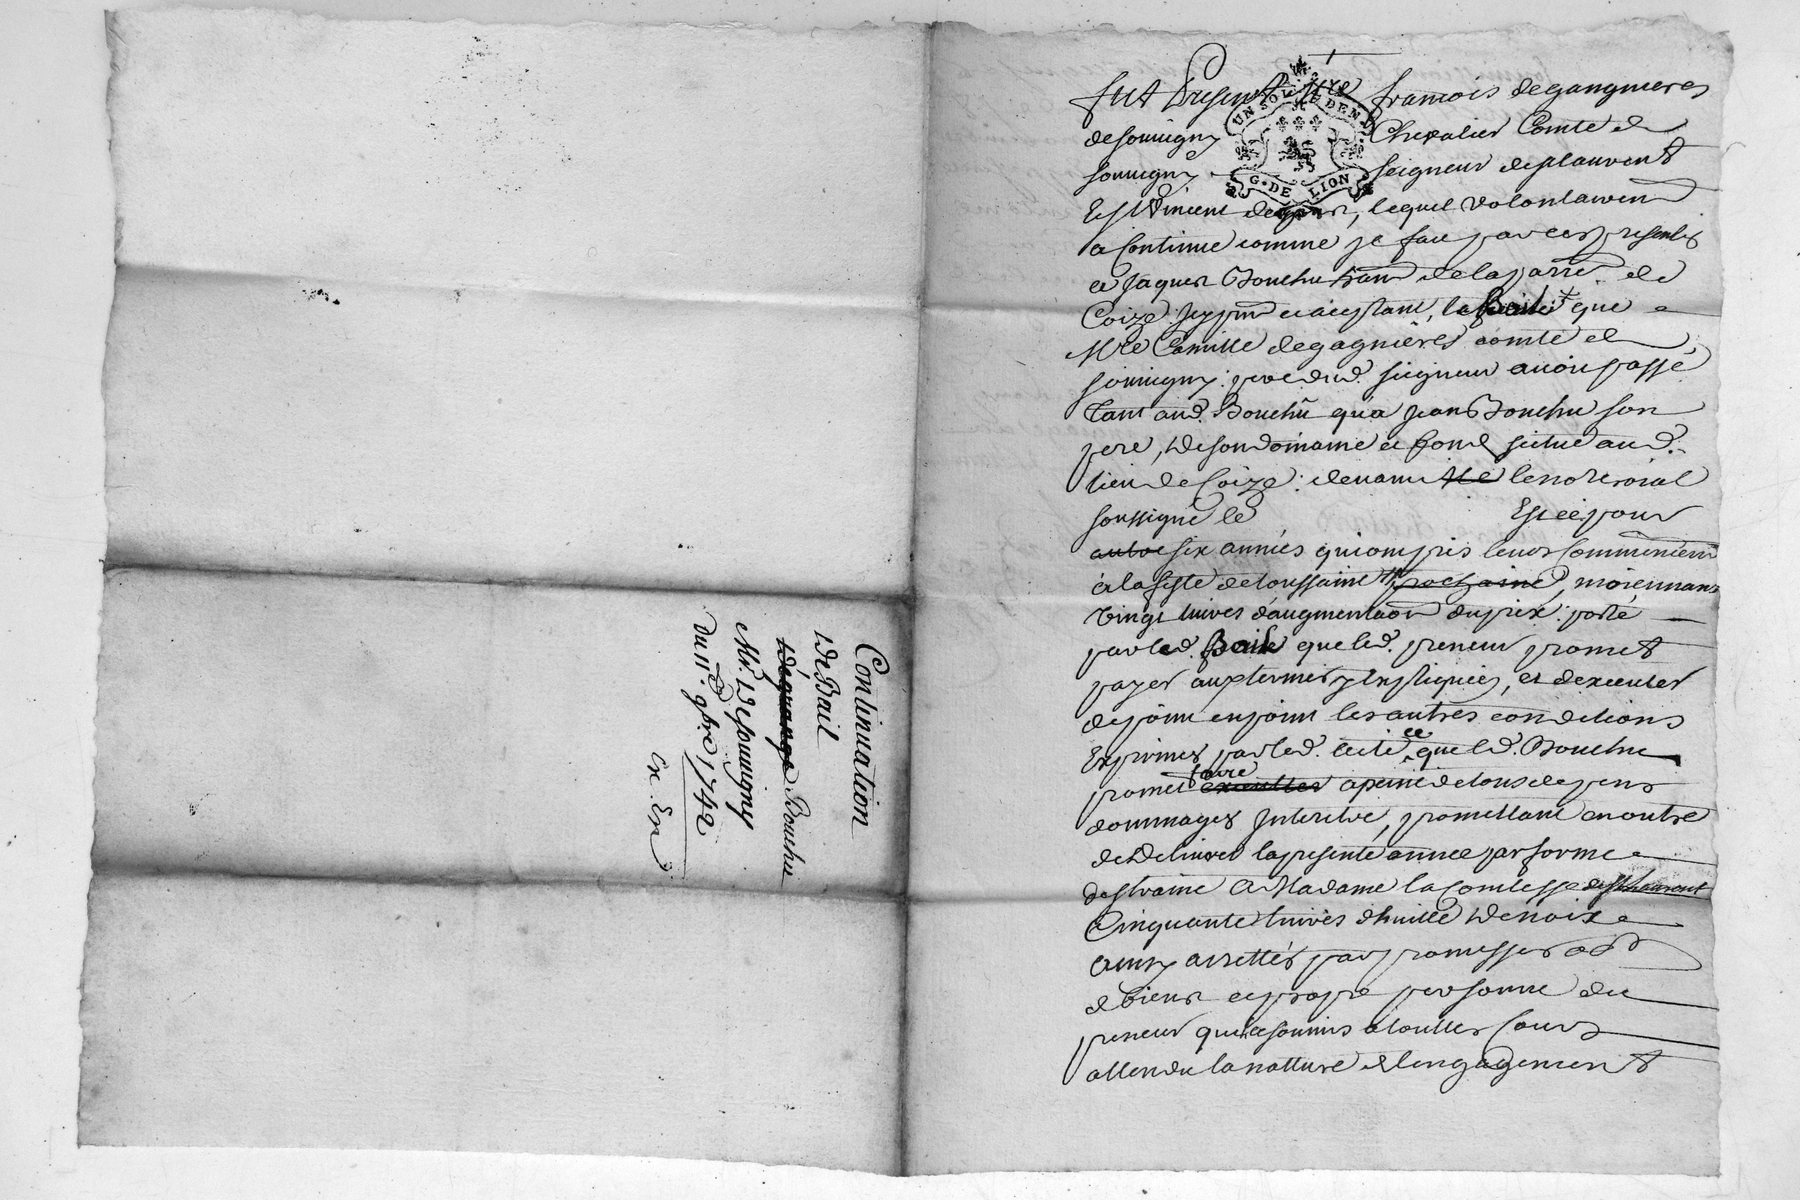 Continuation
de Bail
degrange Bouchu
Mr. de Souvigny
Du 11e 9bre 1742
Ex. En
UN SOL DEN
G. DE LION
fut Present Mre francois de gangnieres
de souvigny Chevalier Comte de
souvigny seigneur de st laurent
Et st Vincent, lequel volontairem
a Continué comme je fait par ces presentes
a Jaques Bouchu de la parre de
Coize, acceptant, le Bail que
Mre Camille de gagnières comte de
souvigny pere dud. seigneur avoit passé
tant aud. Bouchu qu'a Jean Bouchu son
pere, de son domaine et fond situé aud.
lieu de Coize: devant Me le notre roial
soussigné le Et ce pour
autre six années qui ont pris leurs Commencem
à la feste de toussaint prochaine, moiennant
vingt livres d'augmentaon du prix porté
par led. Bail que led. preneur promet
payer aux termes y Expliqués, et d'executer
de point en point les autres conditions
Exprimés par led. ce que led. Bouchu
promet faire executer a peine de tous depens
dommages Interets, promettant en outre
de delivrer la presente année par forme
destraine A Madame la Comtesse de st laurent
Cinquante livres d'huille de noix
Ainsy arrettés par promesses
de biens et propre personne du
preneur quil a soumis a touttes Cours
attendu la natture de l'engagement